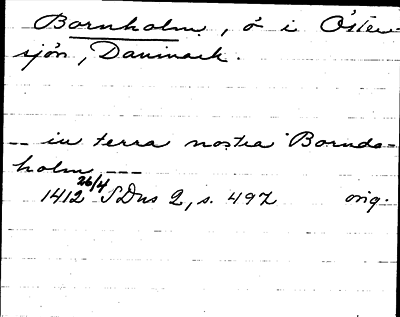 Bornholm, ö i Öster-
sjön, Danmark.
-- in terra nostra Borndo-
holm ---
1412 26/4 SDns 2, s. 497 orig.